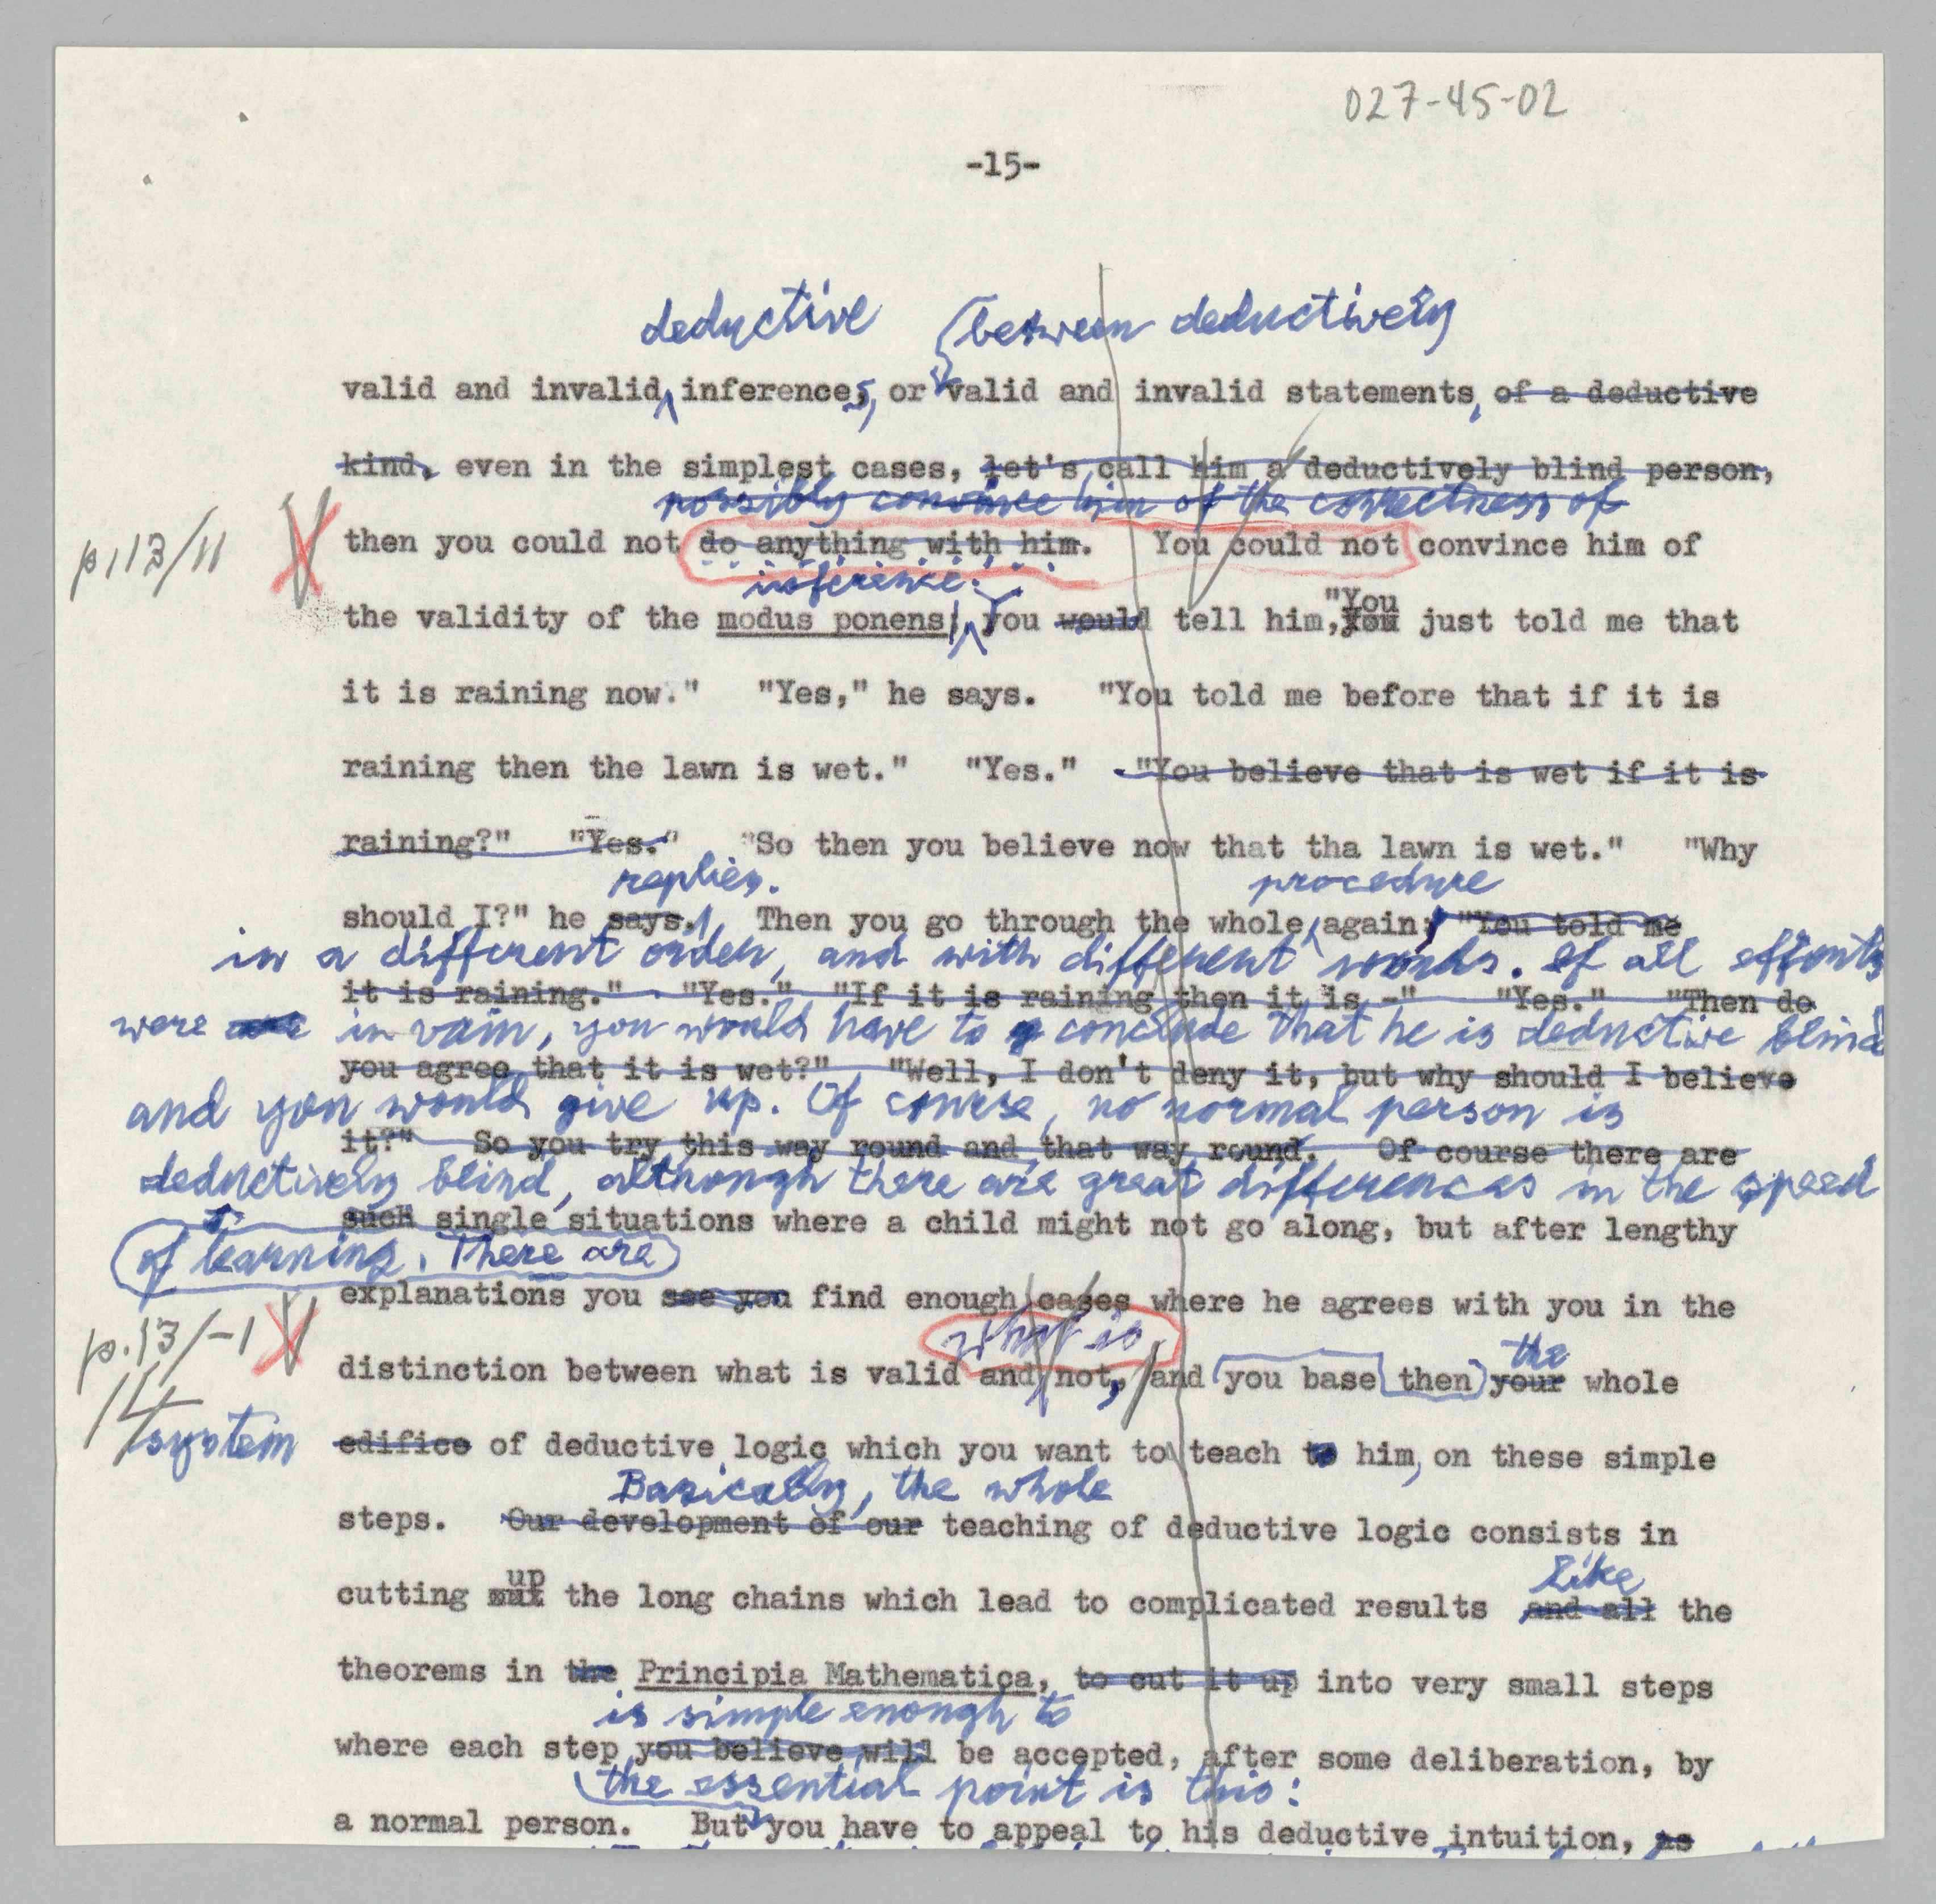 027-45-02
-15-
deductive between deductively
valid and invalid inferences, or valid and invalid statements, of a deductive
kind, even in the simplest cases, let's call him a deductively blind person,
possibly convince him of the correctness of
p. 13/11 then you could not do anything with him. You could not convince him of
inference:
the validity of the modus ponens. You would tell him, "You just told me that
it is raining now." "Yes," he says. "You told me before that if it is
raining then the lawn is wet." "Yes." "You believe that is wet if it is
raining?" "Yes." "So then you believe now that tha lawn is wet." "Why
replies. procedure
should I?" he says. Then you go through the whole again; "You told me
in a different order, and with different words. If all efforts
it is raining." "Yes." "If it is raining then it is -" "Yes." "Then do
were in vain, you would have to conclude that he is deductive blind
you agree that it is wet?" "Well, I don't deny it, but why should I believe
and you would give up. Of course, no normal person is
it?" So you try this way round and that way round. Of course there are
deductively blind, although there are great differences in the speed
such single situations where a child might not go along, but after lengthy
of learning. There are
explanations you see you find enough cases where he agrees with you in the
p. 13/-1 what is the
distinction between what is valid and not, and you base then your whole
14
system edifice of deductive logic which you want to teach to him, on these simple
Basically, the whole
steps. Our development of our teaching of deductive logic consists in
up like
cutting out the long chains which lead to complicated results and all the
theorems in the Principia Mathematica, to cut it up into very small steps
is simple enough to
where each step you believe will be accepted, after some deliberation, by
the essential point is this:
a normal person. But you have to appeal to his deductive intuition, as